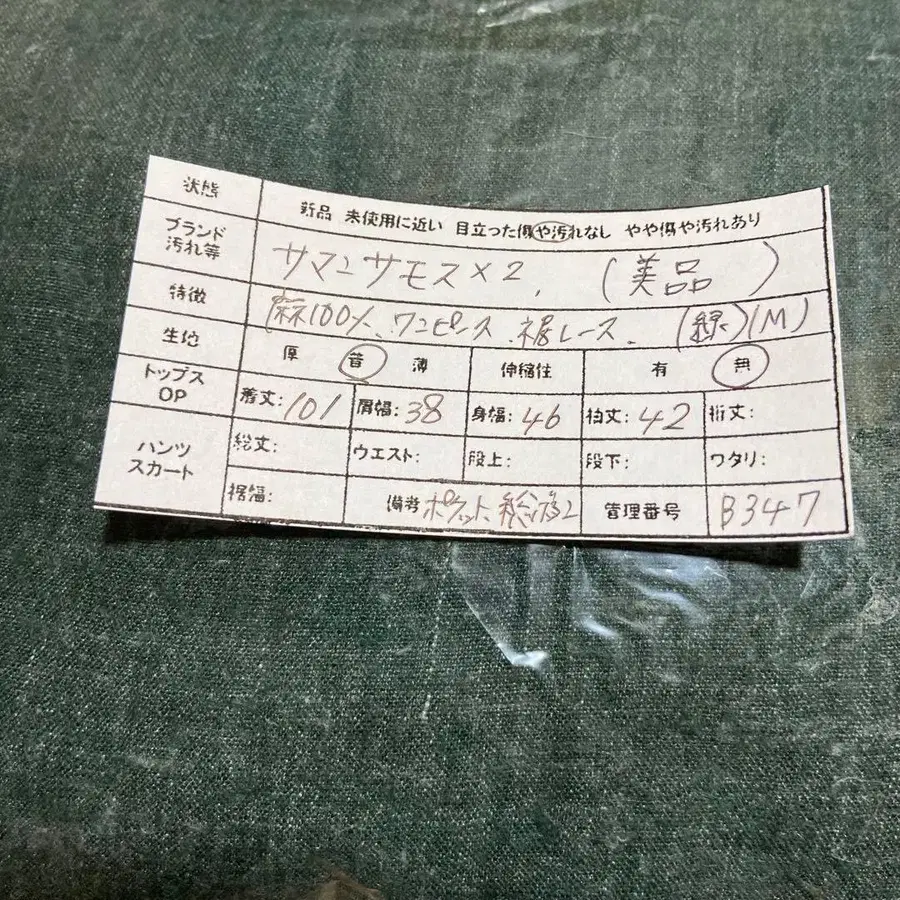 状態 新品 未使用に近い 目立った傷や汚れなし やや傷や汚れあり
ブランド 汚れ等 サマンサモス×2, (美品)
特徴 麻100%、ワンピース、裾レース、(緑)(M)
生地 厚 普 薄 伸縮性 有 無
トップス OP 着丈:101 肩幅:38 身幅:46 袖丈:42 裄丈:
パンツ スカート 総丈: ウエスト: 股上: 股下: ワタリ:
裾幅: 備考 ポケット、総裏 管理番号 B347